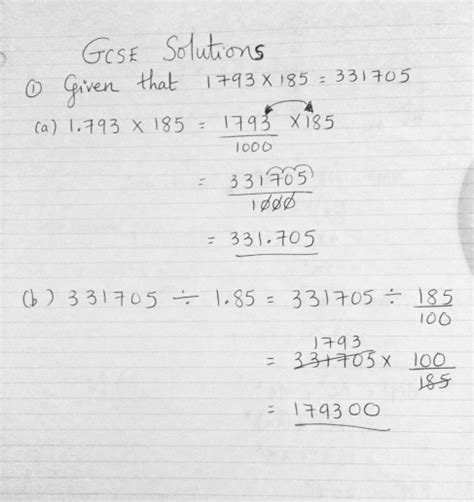 GCSE Solutions
① Given that 1793 × 185 = 331705
(a) 1.793 × 185 = 1793 × 185
1000
= 331705
1000
= 331.705
(b) 331705 ÷ 1.85 = 331705 ÷ 185
100
1793
= 331705 × 100
185
= 179300